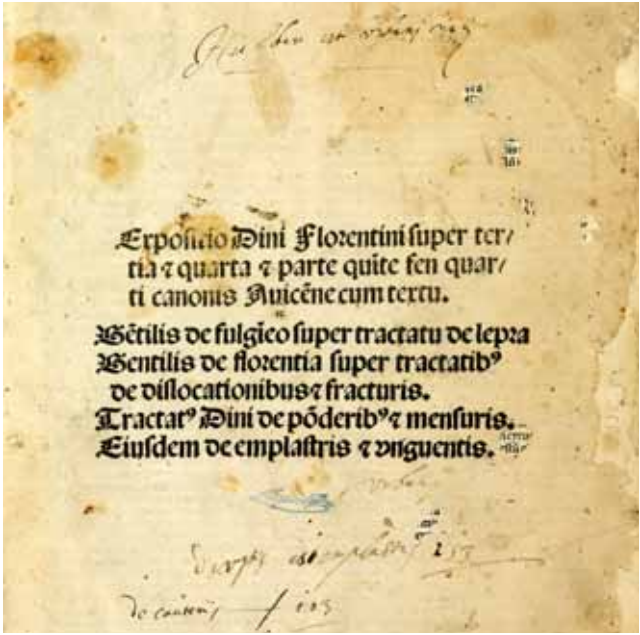 Expositio Dini Florentini super ter/
tia ⁊ quarta ⁊ parte quīte fen quar/
ti canonis Auicēne cum textu.
Gētilis de fulgīeo super tractatu de lepra
Gentilis de florentia super tractatibꝰ
de dislocationibus ⁊ fracturis.
Tractatꝰ Dini de pōderibꝰ ⁊ mensuris.
Eiusdem de emplastris ⁊ vnguentis.